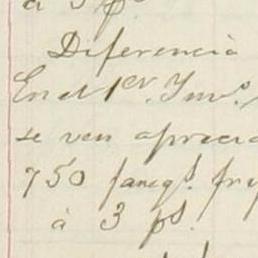 à 3 ps
Diferencia
En el 1er. Invo.
se ven aprecia
750 fanegs. frij
à 3 ps.